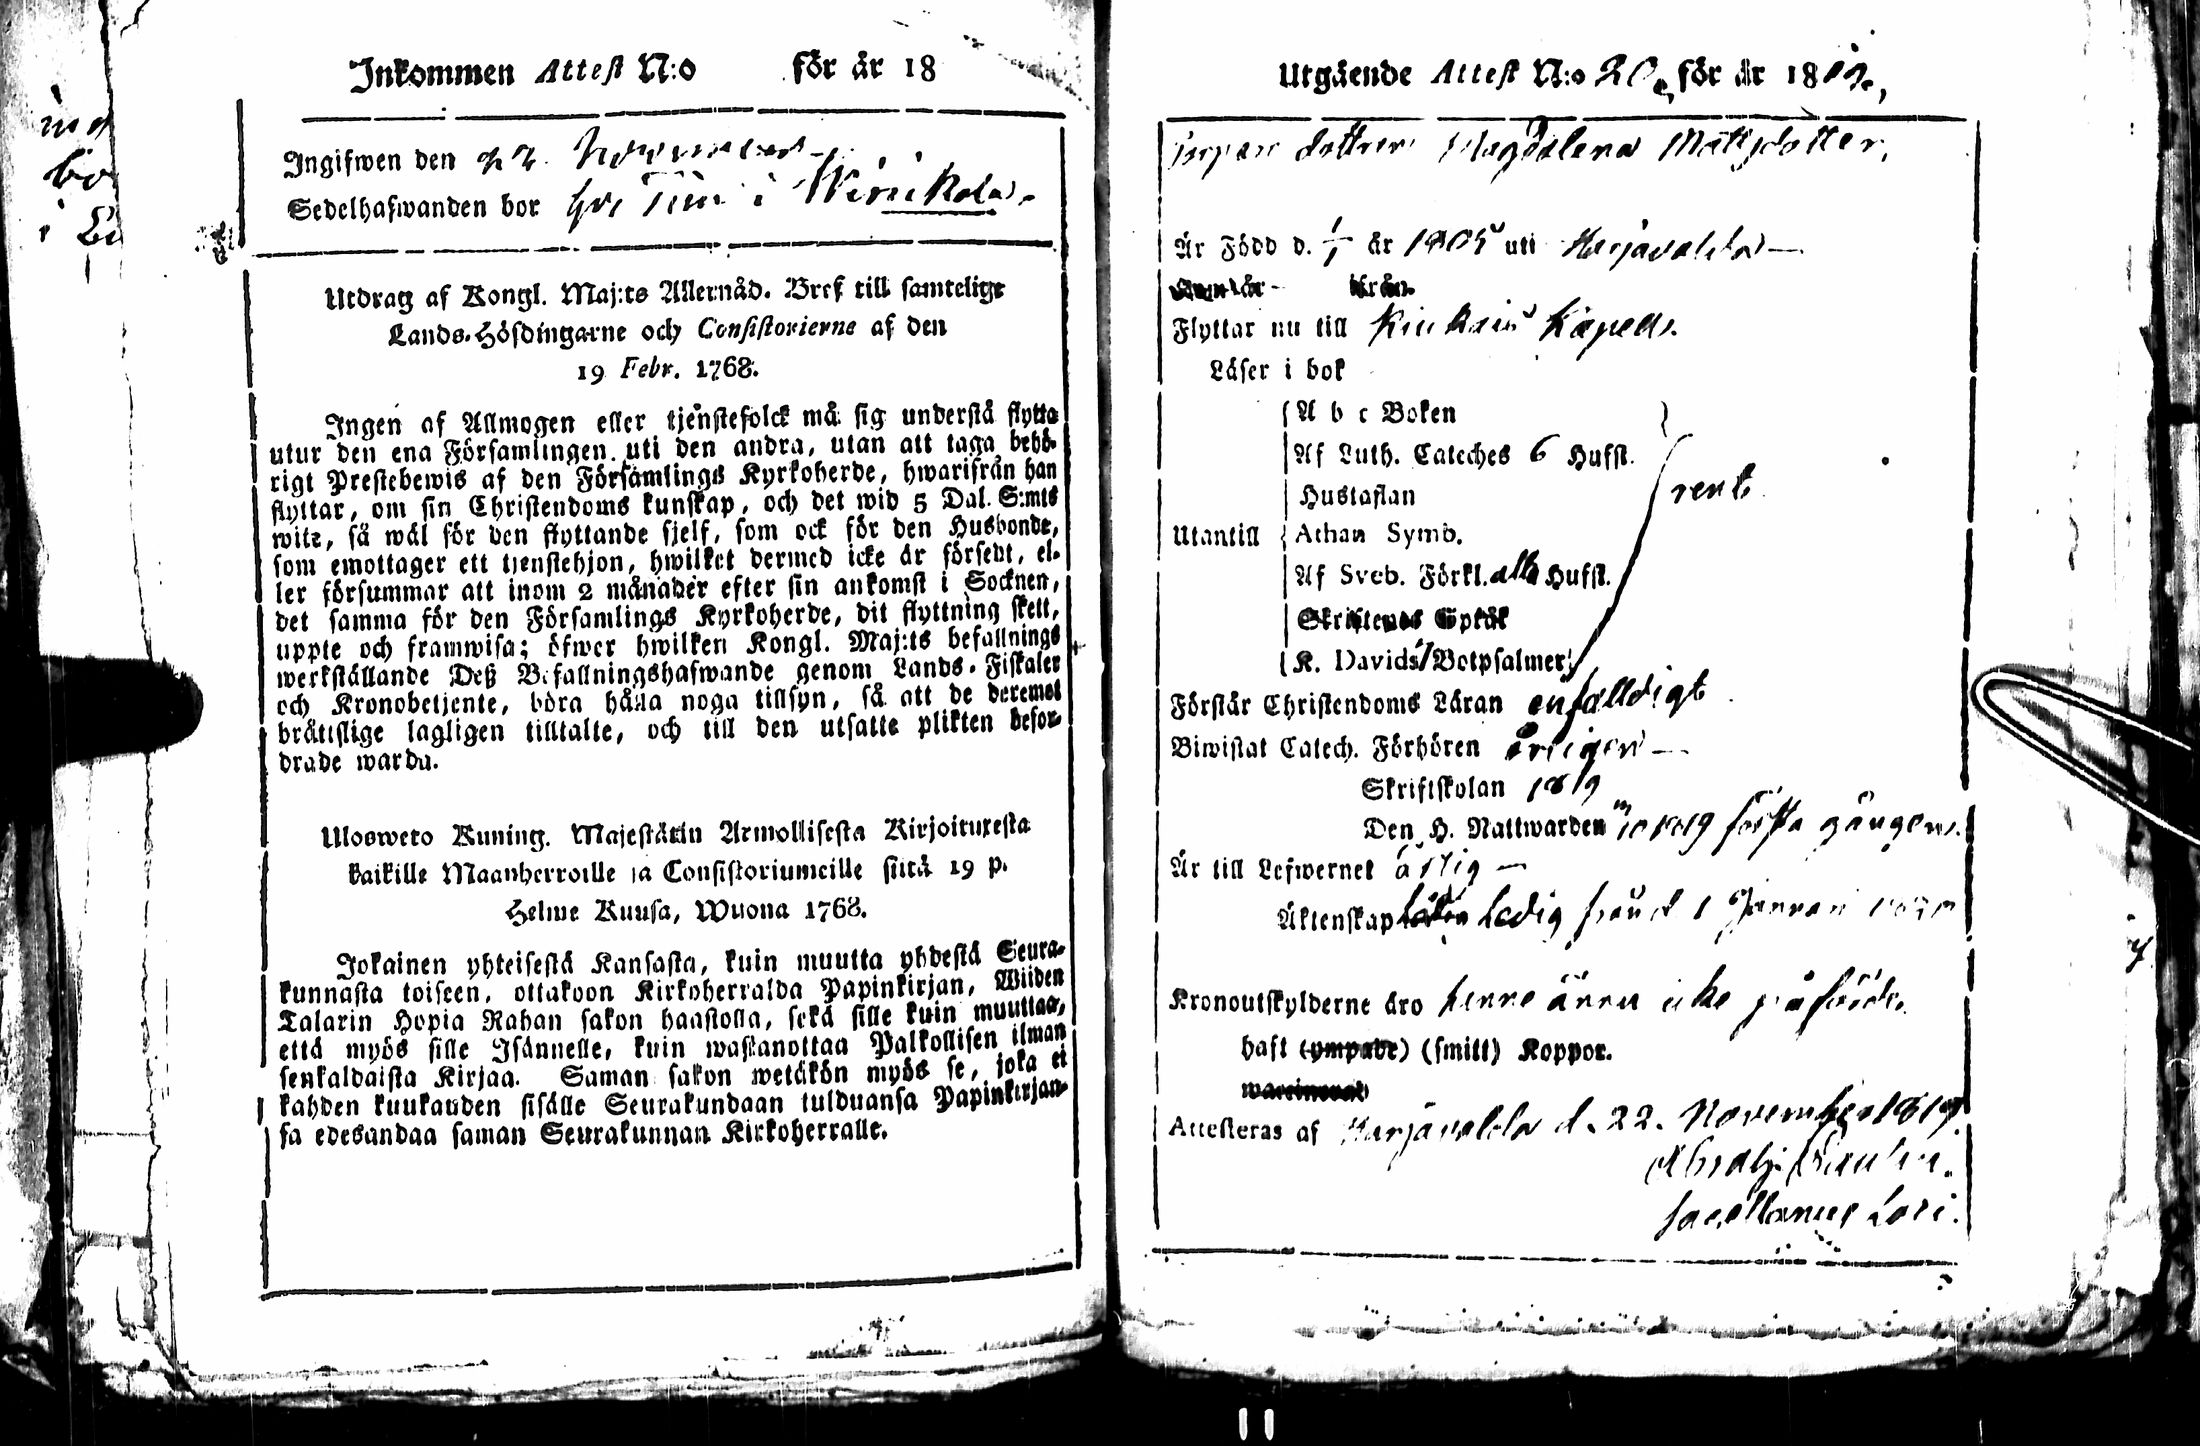 Inkommen Attest N:o för år 18
Ingifwen den 22 November
Sedelhafwanden bor hos i
Utdrag af Kongl. Maj:ts Allernåd. Bref till samtelige
Lands-Höfdingarne och Consistorierne af den
19 Febr. 1768.
Ingen af Allmogen eller tjenstefolck må sig understå flytta
utur den ena Församlingen uti den andra, utan att taga behö-
rigt Prestebewis af den Församlings Kyrkoherde, hwarifrån han
flyttar, om sin Christendoms kunskap, och det wid 5 Dal. S:mts
wite, så wäl för den flyttande sjelf, som ock för den Husbonde,
som emottager ett tjenstehjon, hwilket dermed icke är försedt, el-
ler försummar att inom 2 månader efter sin ankomst i Socknen,
det samma för den Församlings Kyrkoherde, dit flyttning skett,
uppte och framwisa; öfwer hwilken Kongl. Maj:ts befallnings
werkställande Deß Befallningshafwande genom Lands-Fiskaler
och Kronobetjente, böra hålla noga tillsyn, så att de deremot
bråttslige lagligen tilltalte, och till den utsatte plikten befor-
drade warda.
Ulosweto Kuning. Majestätin Armollisesta Kirjoituxesta
kaikille Maanherroille ja Consistoriumeille siitä 19 p.
Helme Kuusa, Wuona 1768.
Jokainen yhteisestä Kansasta, kuin muutta yhdestä Seura-
kunnasta toiseen, ottakoon Kirkoherralda Papinkirjan, Wiiden
Talarin Hopia Rahan sakon haastolla, sekä sille kuin muuttaa,
että myös sille Isännelle, kuin wastanottaa Palkollisen ilman
senkaldaista Kirjaa. Saman sakon wetäkön myös se, joka ei
kahden kuukauden sisälle Seurakundaan tulduansa Papinkirjan-
sa edesandaa saman Seurakunnan Kirkoherralle.
Utgående Attest N:o 20, för år 1819,
Pigan dottren Magdalena Mattsdotter,
Är Född d. 1/1 år 1805 uti Harjavalda
från
Flyttar nu till Kiukais Kapell.
Läser i bok
A b c Boken
Af Luth. Cateches 6 Hufst.
Hustaflan
rent
Utantill Athan Symb.
Af Sveb. Förkl. alla Hufst.
K. Davids 7 Botpsalmer
Förstår Christendoms Läran enfalldigt
Biwistat Catech. Förhören
Skriftskolan 1819
Den H. Nattwarden 1819 första gången.
Är till Lefwernet ärlig
Äktenskap ledig från d 1 Januari
Kronoutskylderne äro henne ännu icke påförde.
haft (ympade) (smitt) Koppor.
Attesteras af Harjavalda d. 22. November 1819.
Sacellanus Loci.